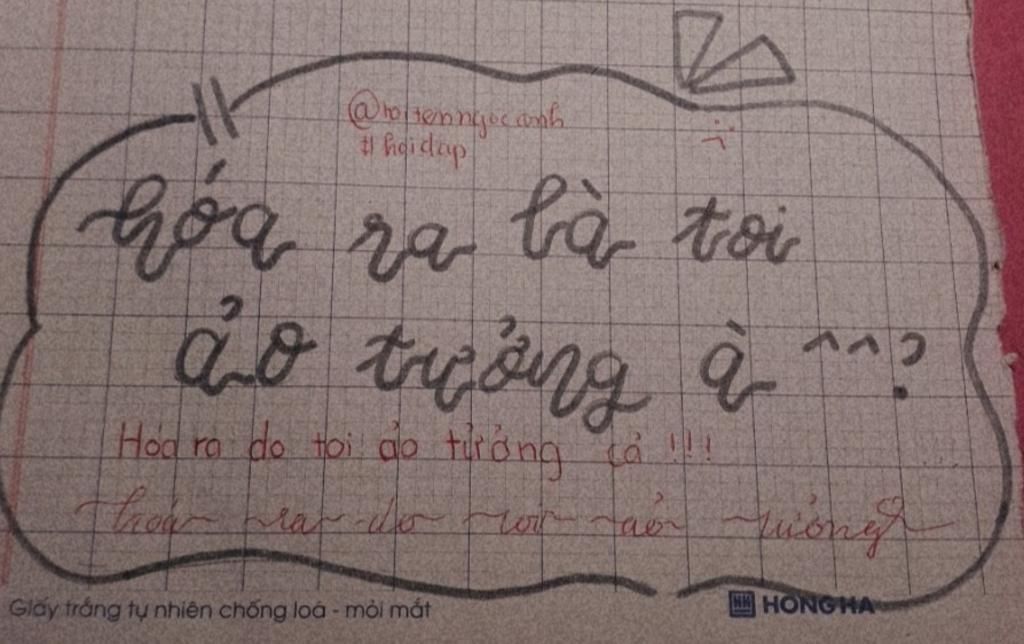 @toitenngocanh
#hoidap
hóa ra là toi
ảo tưởng à ^^?
Hóa ra do toi ảo tưởng cả !!!
hoá ra do toi ảo tưởng
Giấy trắng tự nhiên chống loá - mỏi mắt
HONG HA